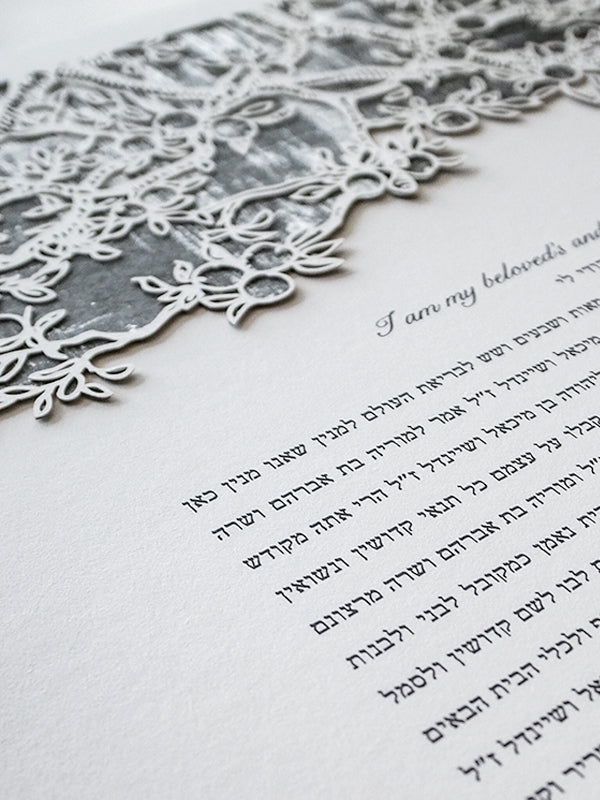 I am my beloved's and
דודי לי
מאות ושבעים ושש לבריאת העולם למנין שאנו מנין כאן
מיכאל ושיינדל ז״ל אמר למוריה בת אברהם ושרה
יהודה בן מיכאל ושיינדל ז״ל הרי אתה מקודש
קבלו על עצמם כל תנאי קדושין ונשואין
ז״ל ומוריה בת אברהם ושרה מרצונם
נאמן כמקובל לבני ולבנות
לבו לשם קדושין ולסמל
ולכלי הבית הבאים
ושיינדל ז״ל